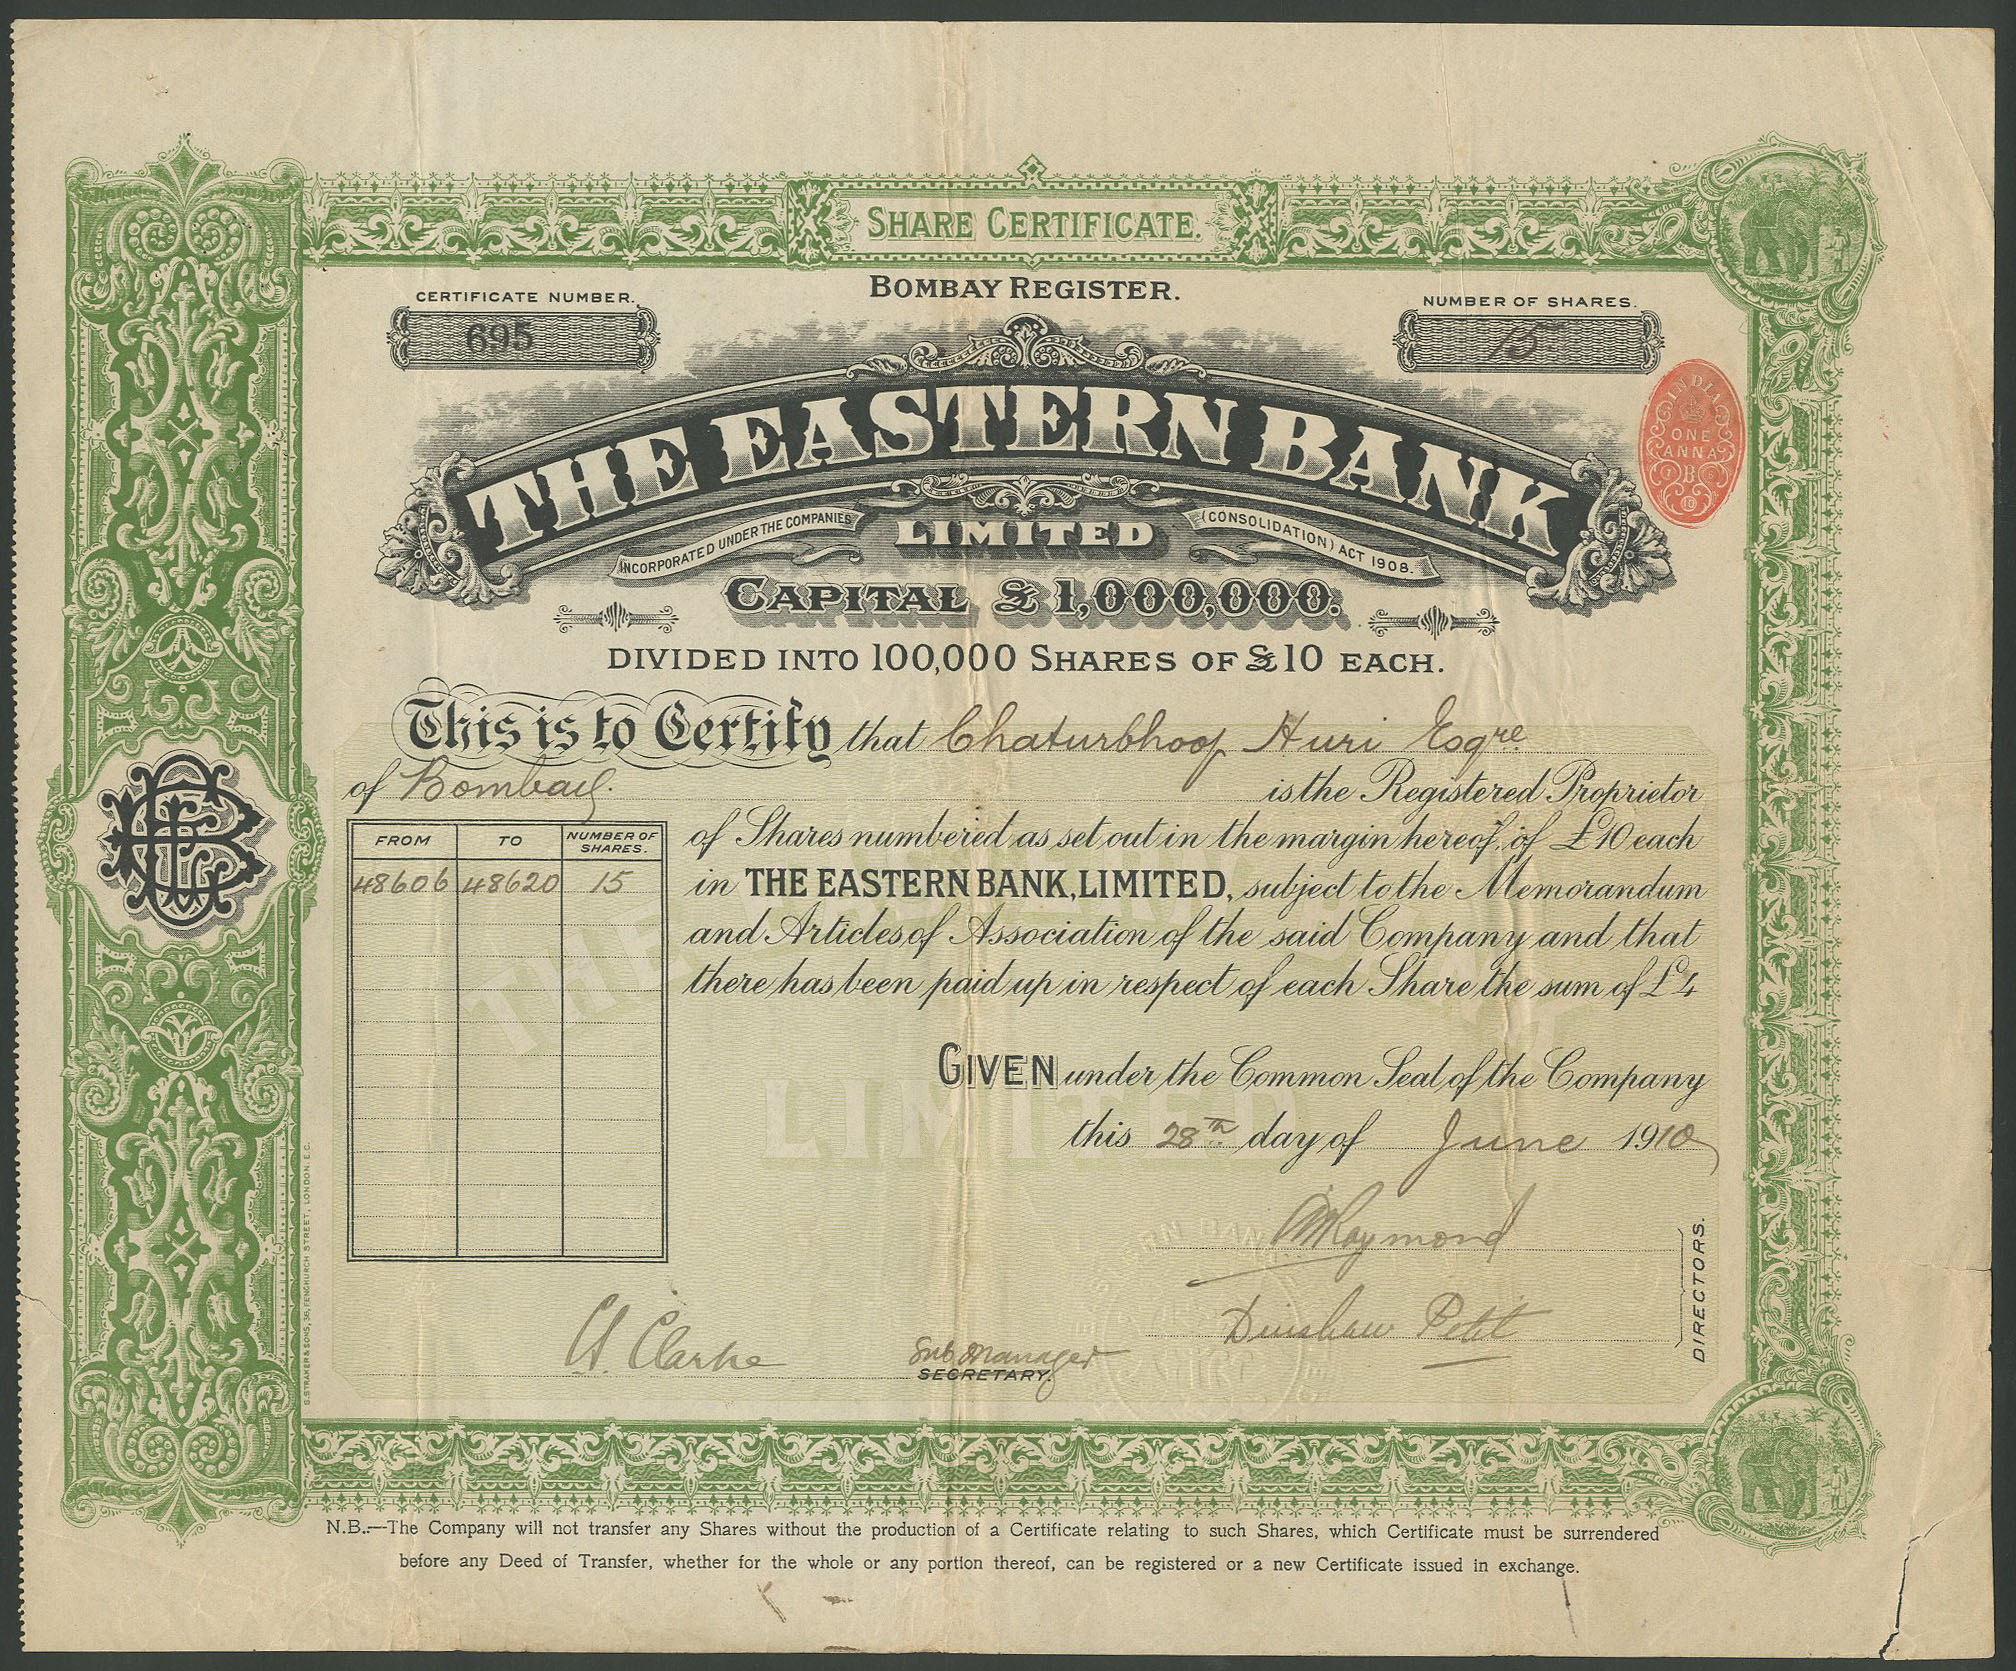 SHARE CERTIFICATE.
BOMBAY REGISTER.
CERTIFICATE NUMBER.
695
NUMBER OF SHARES.
15
INDIA
ONE
ANNA
B
THE EASTERN BANK
LIMITED
INCORPORATED UNDER THE COMPANIES (CONSOLIDATION) ACT 1908.
CAPITAL £1,000,000.
DIVIDED INTO 100,000 SHARES OF £10 EACH.
This is to Certify that Chaturbhooj Huri Esqre
of Bombay. is the Registered Proprietor
of Shares numbered as set out in the margin hereof, of £10 each
in THE EASTERN BANK, LIMITED, subject to the Memorandum
and Articles of Association of the said Company and that
there has been paid up in respect of each Share the sum of £4
FROM TO NUMBER OF SHARES.
48606 48620 15
GIVEN under the Common Seal of the Company
this 28th day of June 1910
Raymond
Dinshaw Petit
DIRECTORS.
Clarke Sub Manager
SECRETARY.
S. STRAKER & SONS, 38, FENCHURCH STREET, LONDON, E.C.
N.B.—The Company will not transfer any Shares without the production of a Certificate relating to such Shares, which Certificate must be surrendered
before any Deed of Transfer, whether for the whole or any portion thereof, can be registered or a new Certificate issued in exchange.